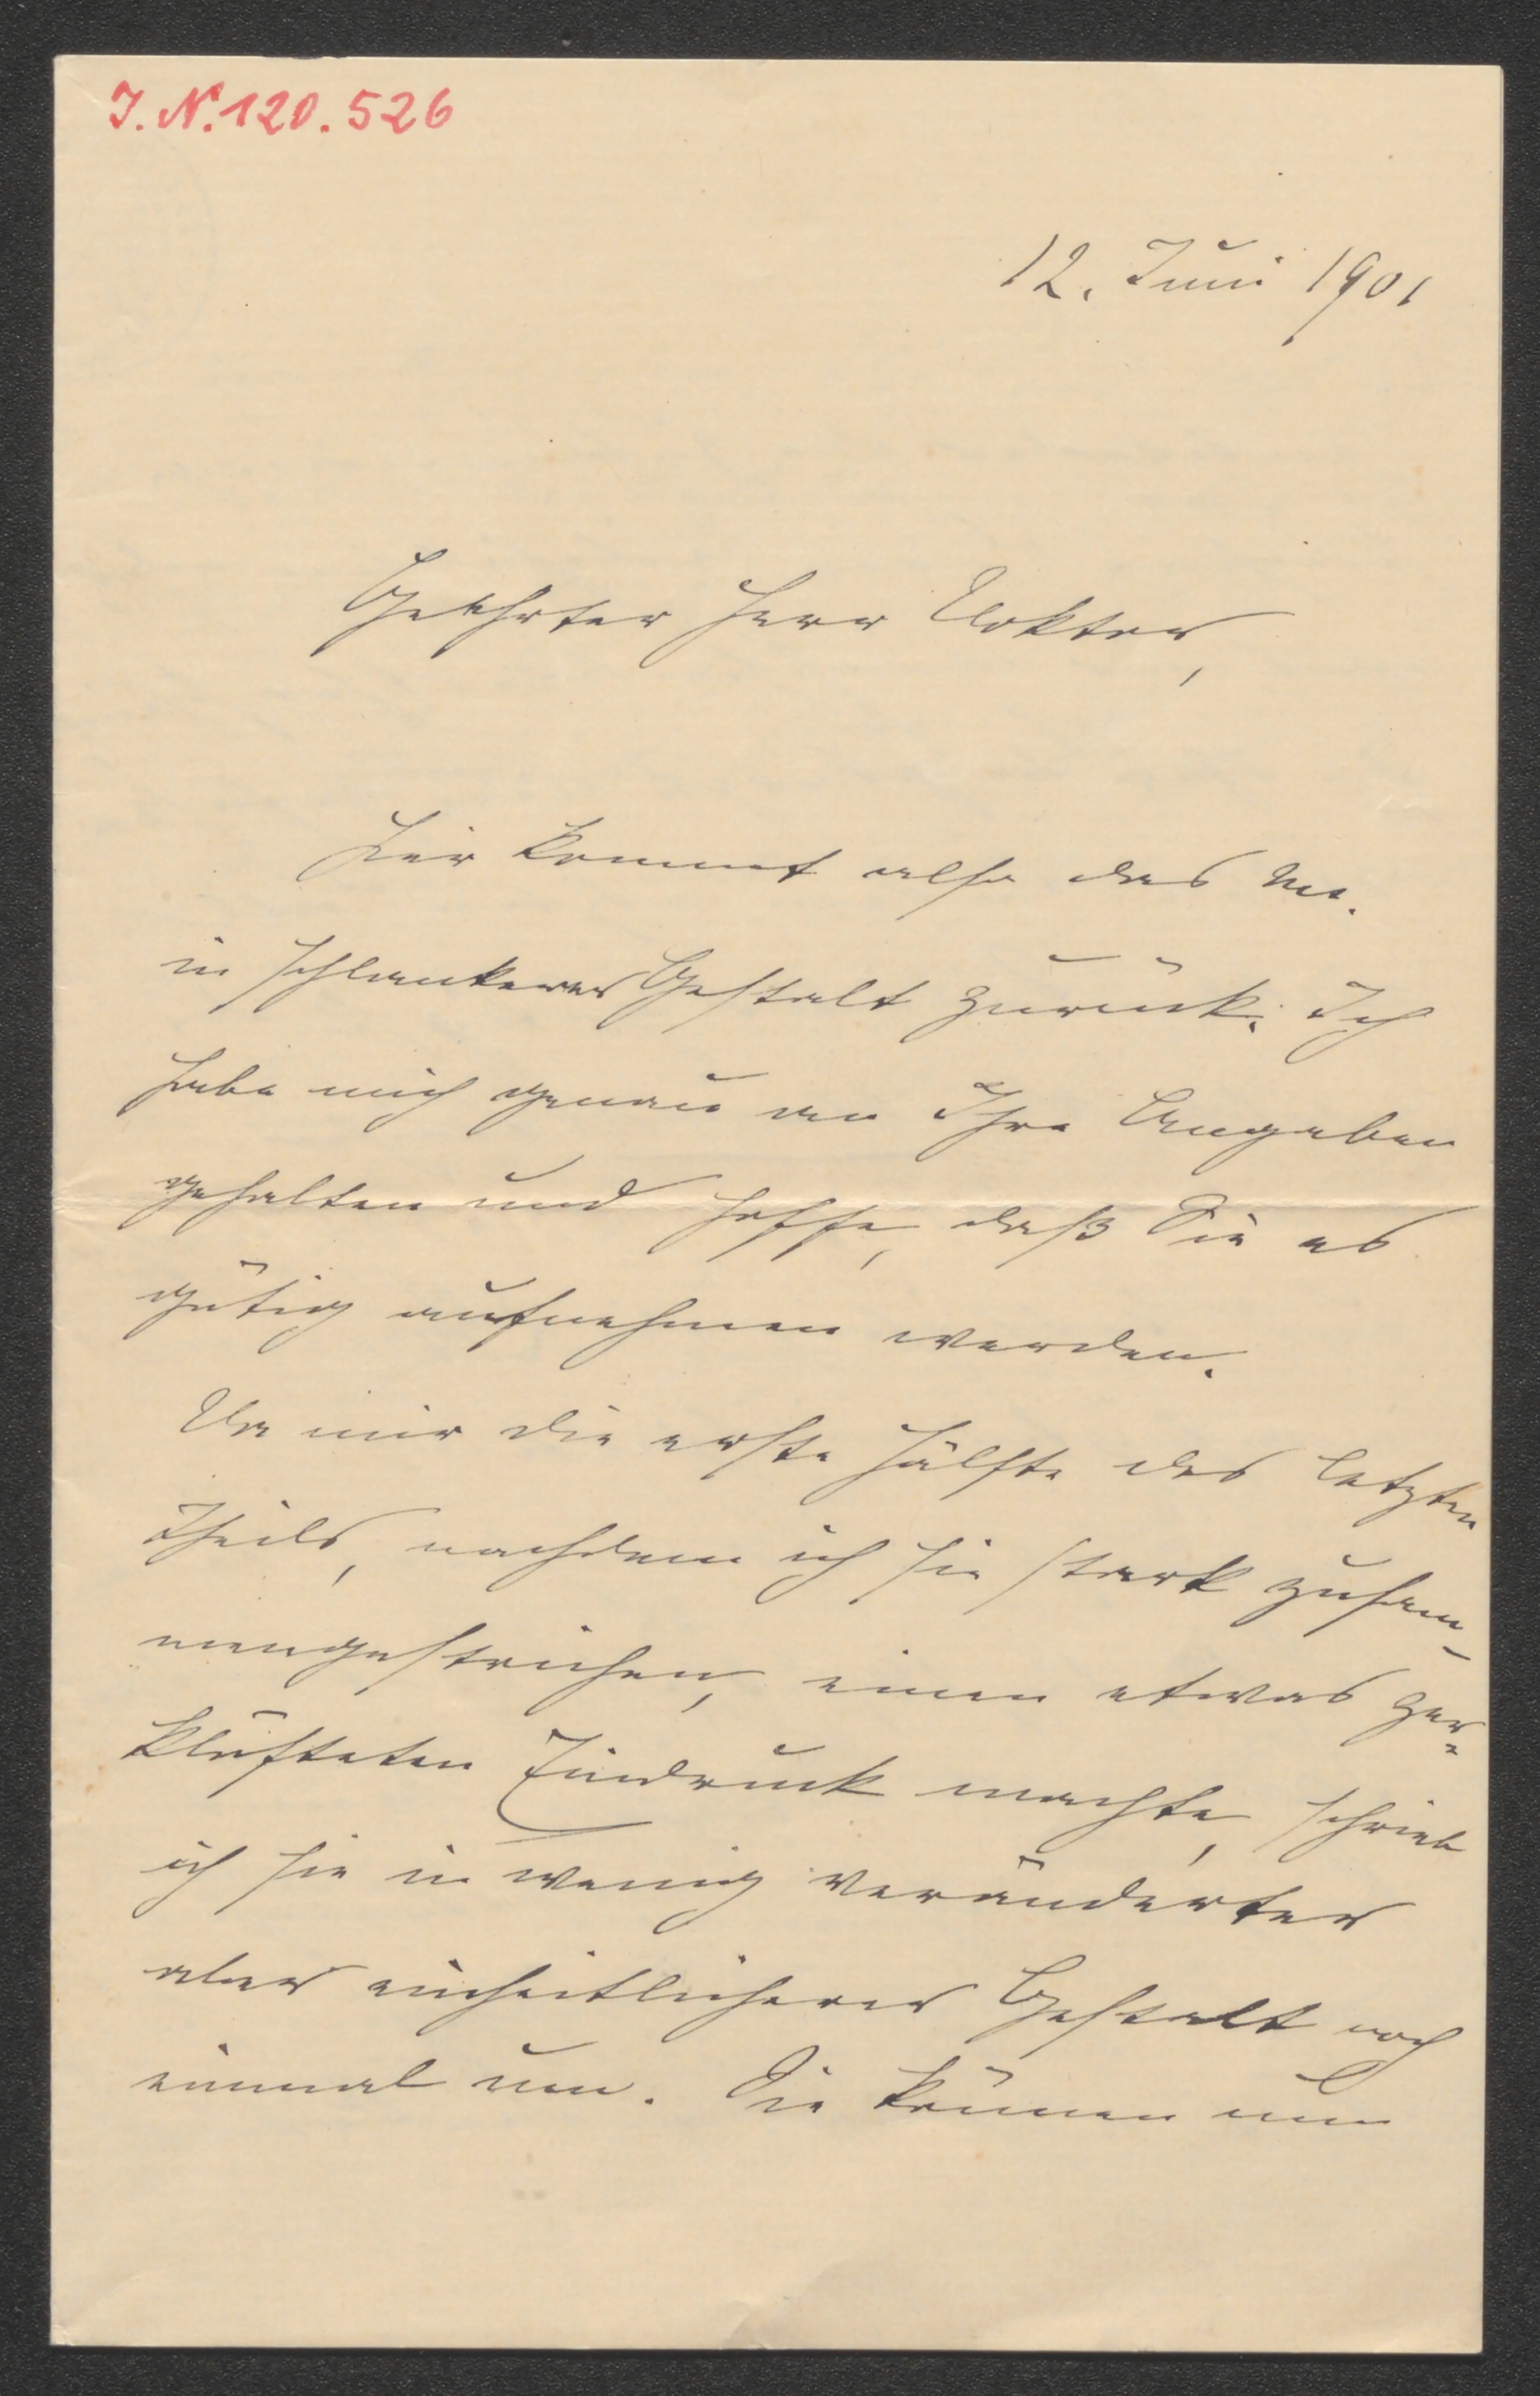 J. N. 120.526
12. Juni 1901
Geehrter Herr Doktor,
Hier kommt also das Ms.
in schlankerer Gestalt zurück. Ich
habe mich genau an Ihre Angaben
gehalten und hoffe, daß Sie es
gütig aufnehmen werden.
Da mir die erste Hälfte des letzten
Theils, nachdem ich sie stark zusam-
mengestrichen, einen etwas zer-
klüfteten Eindruck machte, schrieb
ich sie in wenig veränderter
aber einheitlicherer Gestalt noch
einmal um. Sie können nun